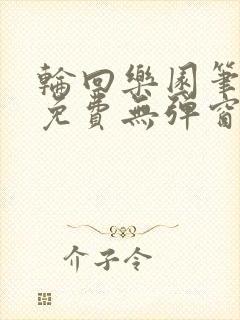 輪回樂園筆
免費無彈窗
介子令